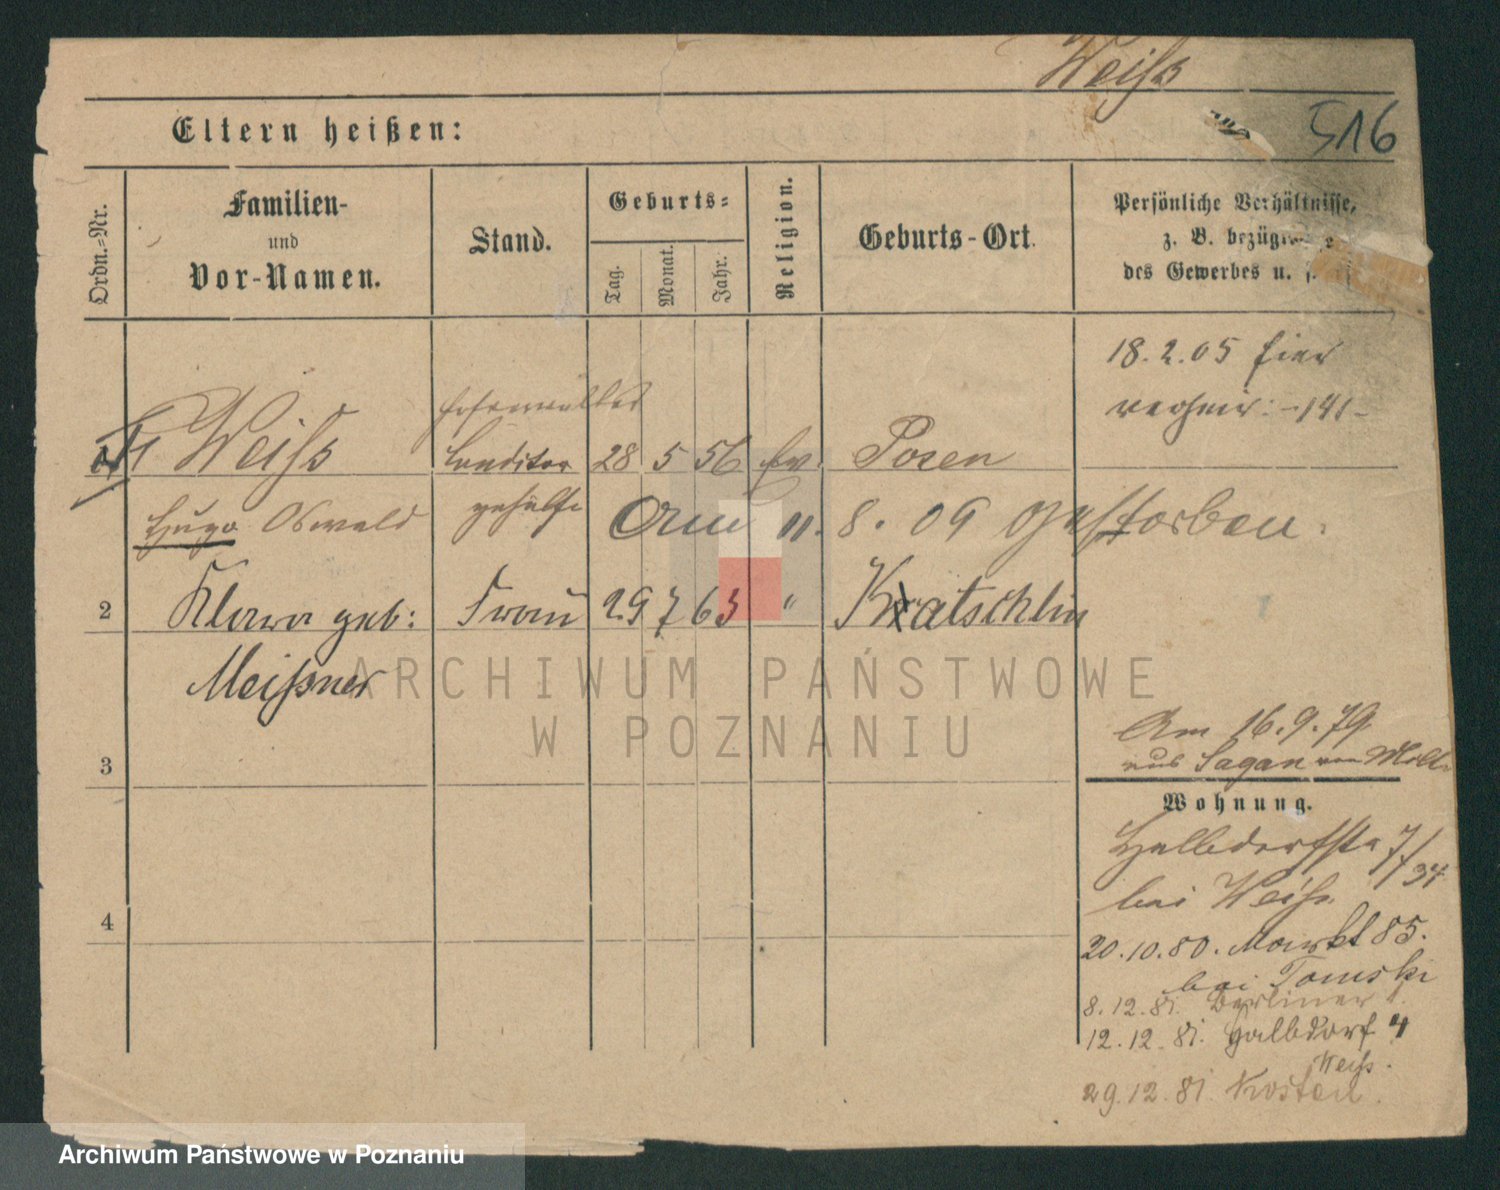 Weiß
516
Eltern heißen:
Ordn.-Nr.
Familien-
und
Vor-Namen.
Stand.
Geburts-
Tag.
Monat.
Jahr.
Religion.
Geburts-Ort.
Persönliche Verhältnisse,
z. B.
des Gewerbes u.
18.2.05 hier
verheir: -141-
1 Weiß
Conditor 28 5 56 Ev. Posen
gehülfe
Hugo Oswald
Am 11. 8. 09 gestorben.
2 Klara geb: Frau 29 7 63 " Kratschlin
Meißner
ARCHIWUM PAŃSTWOWE
W POZNANIU
3
Am 16.9.79
aus Sagan
Wohnung.
Halbdorfstr 7/34
bei Weiß
4
20.10.80. Markt 85.
bei Tomski
8.12.81. Berliner 1.
12.12.81. Halbdorf 4
Weiß.
29.12.81. Kosten.
Archiwum Państwowe w Poznaniu